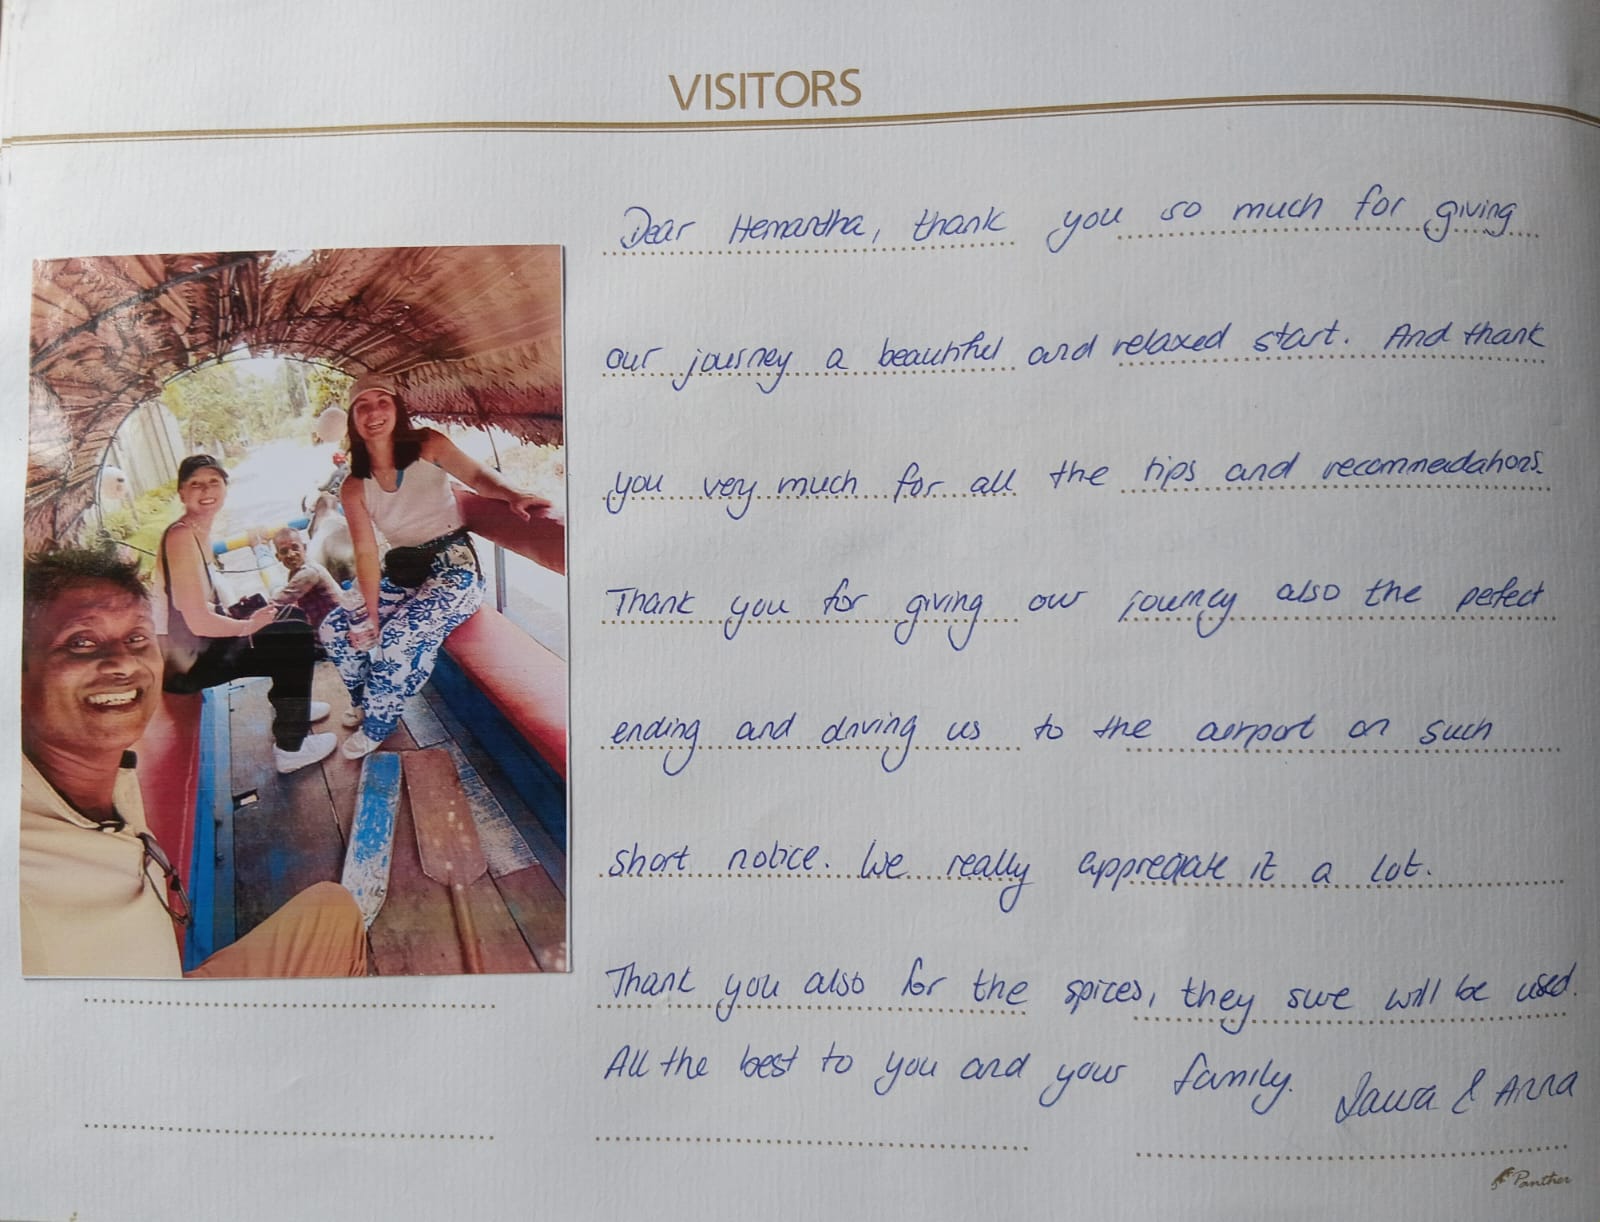 VISITORS
Dear Hemantha, thank you so much for giving
our journey a beautiful and relaxed start. And thank
you very much for all the tips and recommadations.
Thank you for giving our journey also the perfect
ending and driving us to the airport on such
short notice. We really appreciate it a lot.
Thank you also for the spices, they sure will be used.
All the best to you and your family. Laura & Anna
Panther